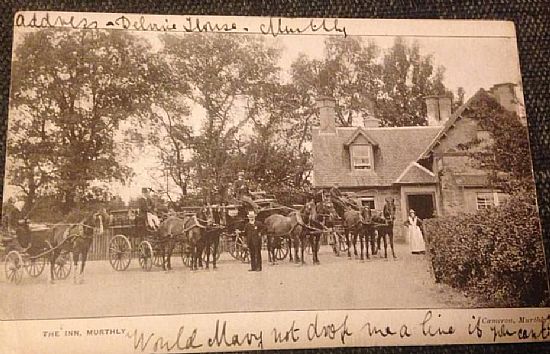 Address - Delvine House - Murthly
Cameron, Murthly
THE INN, MURTHLY.
Would Mary not drop me a line is